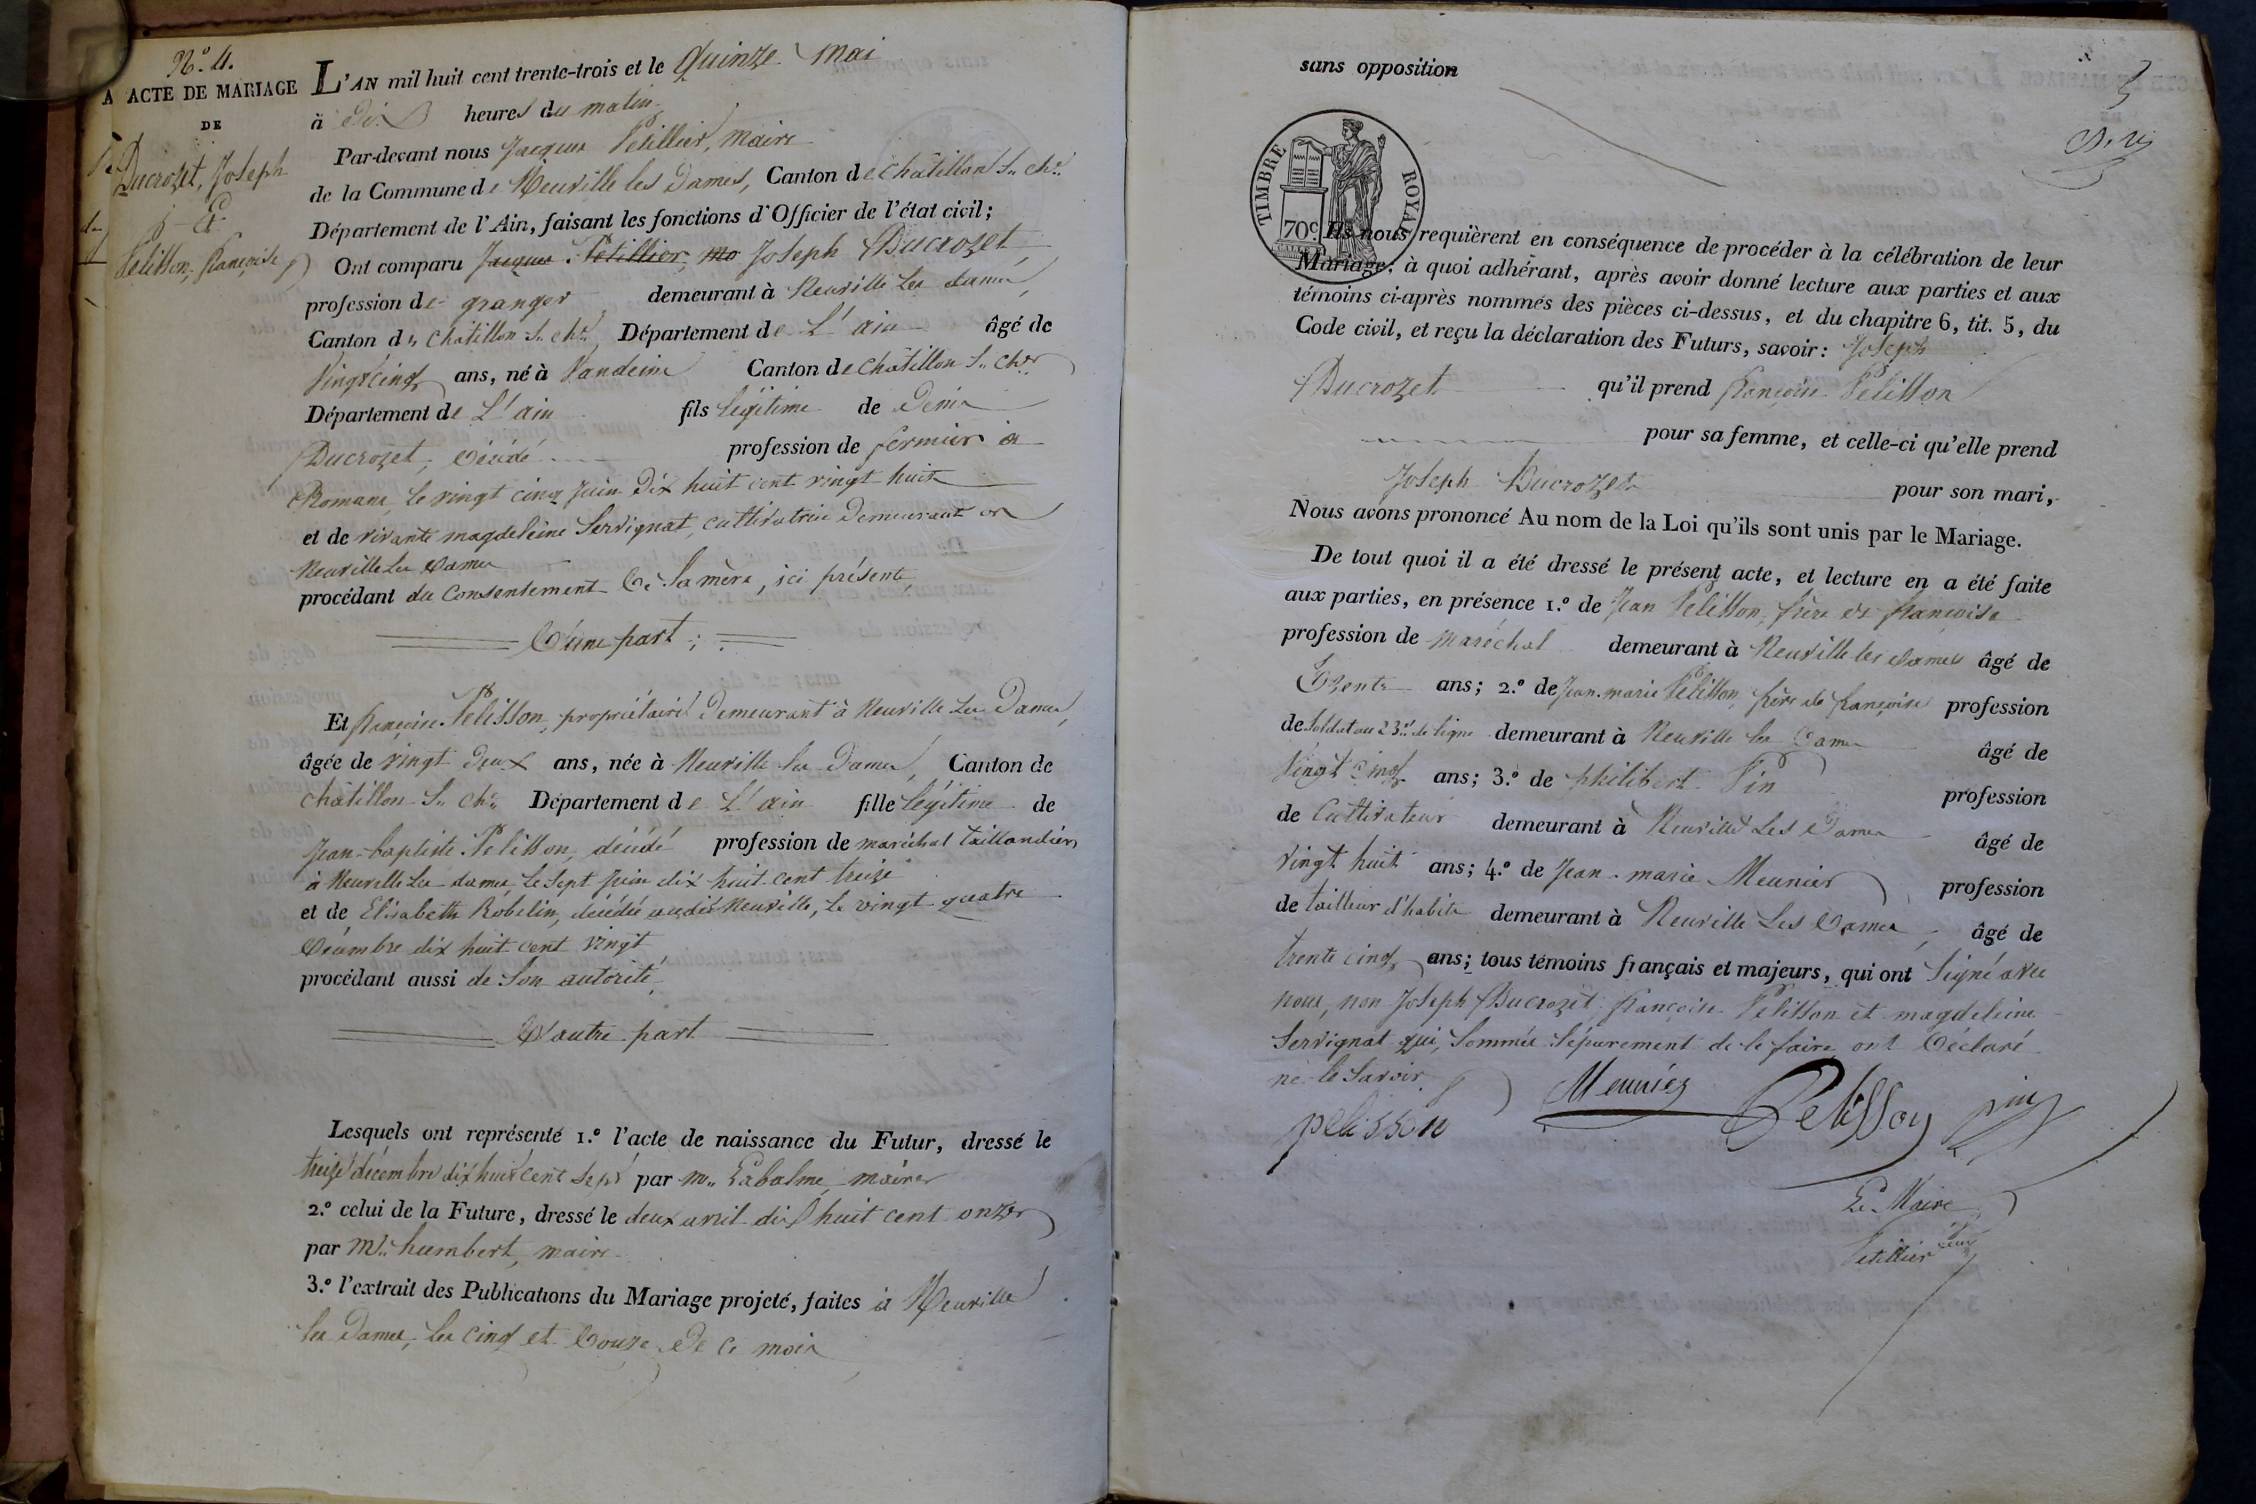 N.º 4.
ACTE DE MARIAGE
DE
Ducrozet, Joseph
&
Pelisson, françoise
L'AN mil huit cent trente-trois et le Quinze Mai
à Dix heures du matin
Par-devant nous Jacques Petillier, Maire
de la Commune de Neuville les Dames, Canton de Châtillon S.. Ch.ne
Département de l'Ain, faisant les fonctions d'Officier de l'état civil;
Ont comparu Jacques Petillier, ma Joseph Ducrozet,
profession de granger demeurant à Neuville Les dames,
Canton de Châtillon S.. ch.ne Département de L'ain âgé de
Vingt cinq ans, né à Vandeins Canton de Châtillon S.. ch.ne
Département de L'ain fils légitime de Denis
Ducrozet, décédé profession de fermier à
Romans, le vingt cinq Juin Dix huit cent vingt huit
et de vivante magdeleine Servignat, cultivatrice Demeurant en
Neuville Les Dames
procédant du Consentement De Sa mère, ici présente,
D'une part;
Et françoise Pelisson, propriétaire Demeurant à Neuville Les Dames,
âgée de vingt Deux ans, née à Neuville les Dames, Canton de
Châtillon S.. ch.ne Département de L'ain fille légitime de
Jean-baptiste Pelisson, décédé profession de maréchal taillandier,
à Neuville Les dames, le Sept Juin dix huit cent treize
et de Elisabeth Robelin, décédée audit Neuville, le vingt quatre
Décembre dix huit cent vingt
procédant aussi de Son autorité,
D'autre part
Lesquels ont représenté 1.º l'acte de naissance du Futur, dressé le
treize décembre dix huit cent sept par m.. Labalme, maire
2.º celui de la Future, dressé le deux avril dix huit cent onze
par M.. humbert, maire
3.º l'extrait des Publications du Mariage projeté, faites à Neuville
les Dames, les cinq et Douze De Ce mois
sans opposition
TIMBRE ROYAL
70 c.
Ils nous requièrent en conséquence de procéder à la célébration de leur
Mariage: à quoi adhérant, après avoir donné lecture aux parties et aux
témoins ci-après nommés des pièces ci-dessus, et du chapitre 6, tit. 5, du
Code civil, et reçu la déclaration des Futurs, savoir: Joseph
Ducrozet qu'il prend françoise Pelisson
pour sa femme, et celle-ci qu'elle prend
Joseph Ducrozet pour son mari,
Nous avons prononcé Au nom de la Loi qu'ils sont unis par le Mariage.
De tout quoi il a été dressé le présent acte, et lecture en a été faite
aux parties, en présence 1.º de Jean Pelisson, frère de françoise
profession de maréchal demeurant à Neuville les Dames âgé de
Trente ans; 2.º de Jean-marie Pelisson, frère de françoise profession
de Soldat au 23.e de ligne demeurant à Neuville les Dames âgé de
Vingt cinq ans; 3.º de philibert Pin profession
de Cultivateur demeurant à Neuville Les Dames âgé de
vingt huit ans; 4.º de Jean-marie Meunier profession
de tailleur d'habits demeurant à Neuville Les Dames, âgé de
trente cinq ans; tous témoins français et majeurs, qui ont Signé avec
nous, non Joseph Ducrozet, françoise Pelisson et magdeleine
Servignat qui, Sommés Séparement de le faire ont Déclaré
ne le Savoir.
pelisson Meunier Pelisson pin
Le Maire
Petillier